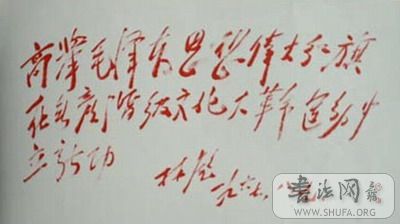 高举毛泽东思想伟大红旗
在无产阶级文化大革命中
立新功
林彪
一九六七
书法网
WWW.SHUFA.ORG